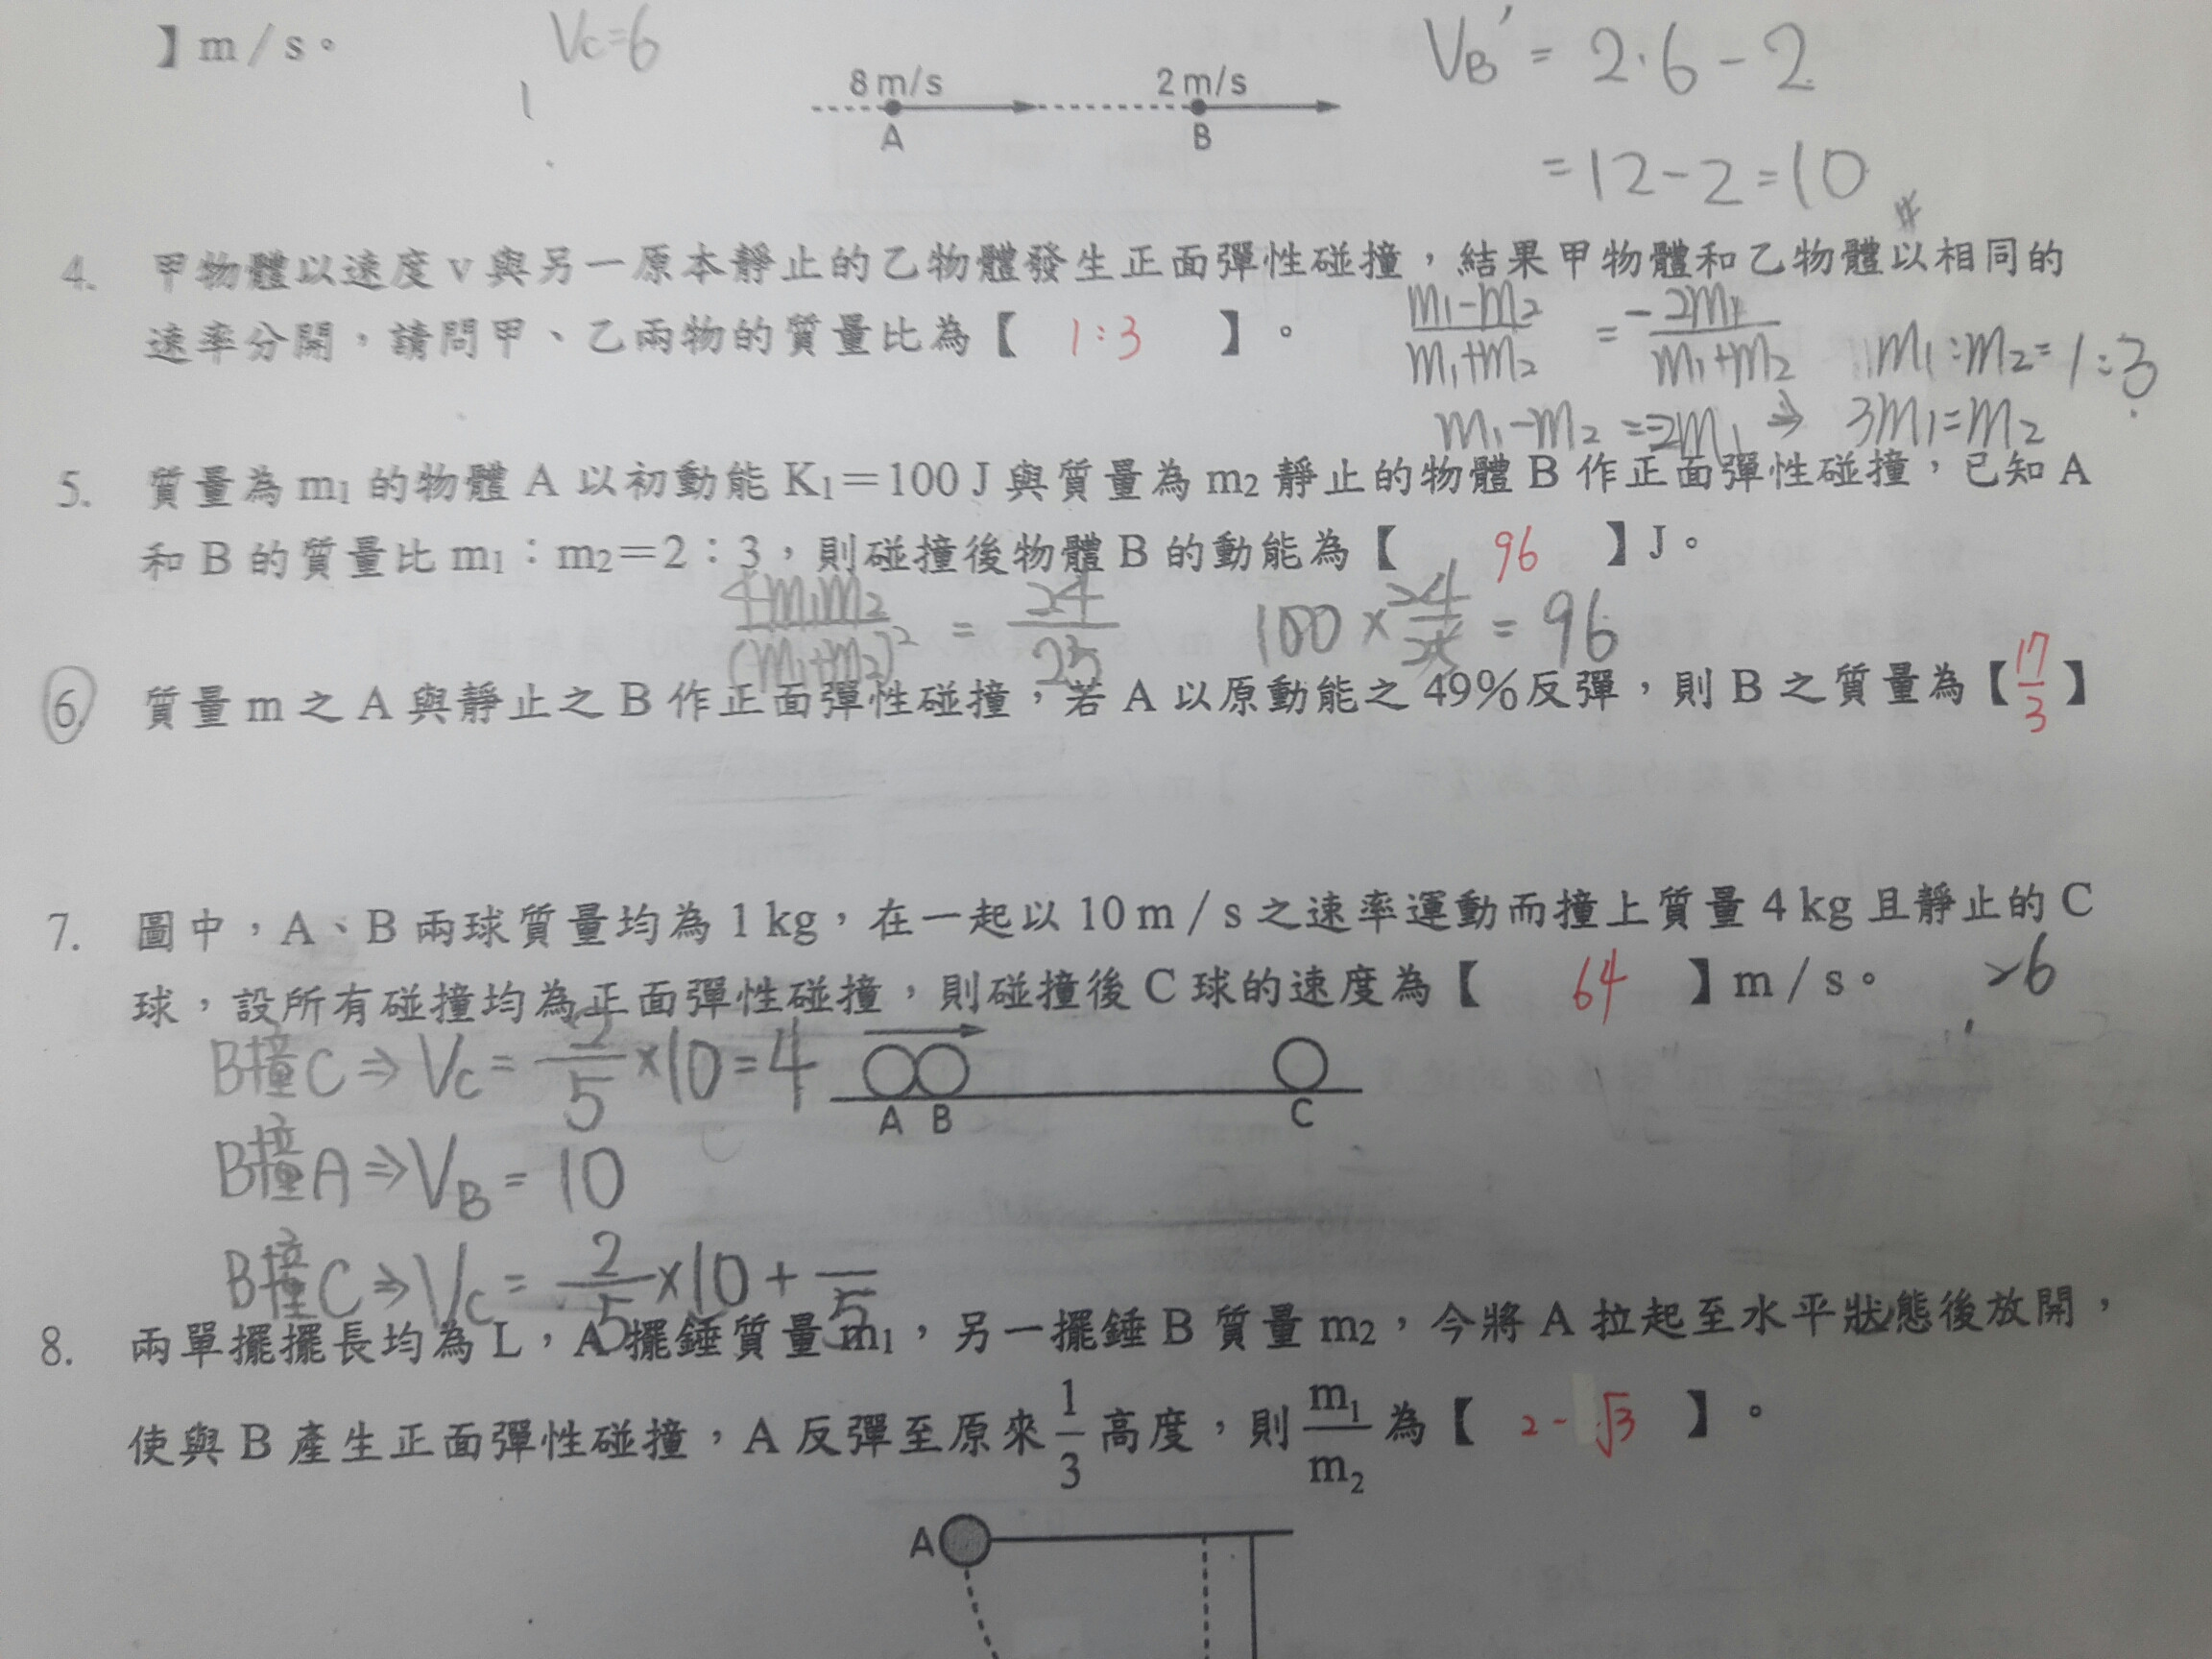 】m/s。
Vc=6
8 m/s
2 m/s
A
B
VB' = 2·6-2
=12-2=10
4. 甲物體以速度 v 與另一原本靜止的乙物體發生正面彈性碰撞，結果甲物體和乙物體以相同的
速率分開，請問甲、乙兩物的質量比為【 1:3 】。
m1-m2/m1+m2 = -2m1/m1+m2
m1:m2=1:3
m1-m2=-2m1 ⇒ 3m1=m2
5. 質量為 m1 的物體 A 以初動能 K1＝100 J 與質量為 m2 靜止的物體 B 作正面彈性碰撞，已知 A
和 B 的質量比 m1：m2＝2：3，則碰撞後物體 B 的動能為【 96 】J。
4m1m2/(m1+m2)² = 24/25
100×24/25=96
6. 質量 m 之 A 與靜止之 B 作正面彈性碰撞，若 A 以原動能之 49%反彈，則 B 之質量為【17/3】
7. 圖中，A、B 兩球質量均為 1 kg，在一起以 10 m/s 之速率運動而撞上質量 4 kg 且靜止的 C
球，設所有碰撞均為正面彈性碰撞，則碰撞後 C 球的速度為【 64 】m/s。
B撞C⇒Vc=2/5×10=4
A B
C
B撞A⇒VB=10
B撞C⇒Vc=2/5×10+ /5
8. 兩單擺擺長均為 L，A 擺錘質量 m1，另一擺錘 B 質量 m2，今將 A 拉起至水平狀態後放開，
使與 B 產生正面彈性碰撞，A 反彈至原來 1/3 高度，則 m1/m2 為【 2-√3 】。
A